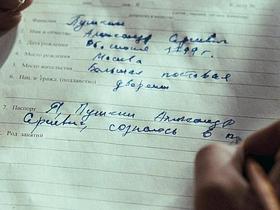 Пушкин
2. Имя и отчество Александр Сергеевич
3. Дата рождения 06. июня 1799 г.
4. Место рождения Москва
5. Место жительства Большая почтовая
6. Нац. и гражд. (подданство) дворянин
7. Паспорт Я, Пушкин Александр
Сергеевич, сознаюсь в
8. Род занятий